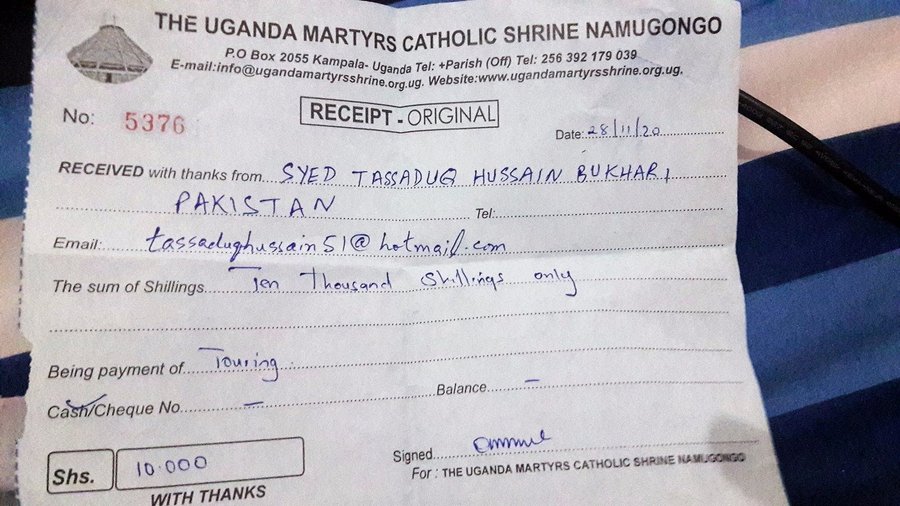 THE UGANDA MARTYRS CATHOLIC SHRINE NAMUGONGO
P.O Box 2055 Kampala- Uganda Tel: +Parish (Off) Tel: 256 392 179 039
E-mail:info@ugandamartyrsshrine.org.ug. Website:www.ugandamartyrsshrine.org.ug.
RECEIPT - ORIGINAL
No: 5376
Date: 28/11/20
RECEIVED with thanks from SYED TASSADUQ HUSSAIN BUKHARI
PAKISTAN Tel:
Email: tassadughussain51@hotmail.com
The sum of Shillings Ten Thousand Shillings only
Being payment of Touring
Cash/Cheque No. – Balance –
Signed
For : THE UGANDA MARTYRS CATHOLIC SHRINE NAMUGONGO
Shs. 10.000
WITH THANKS